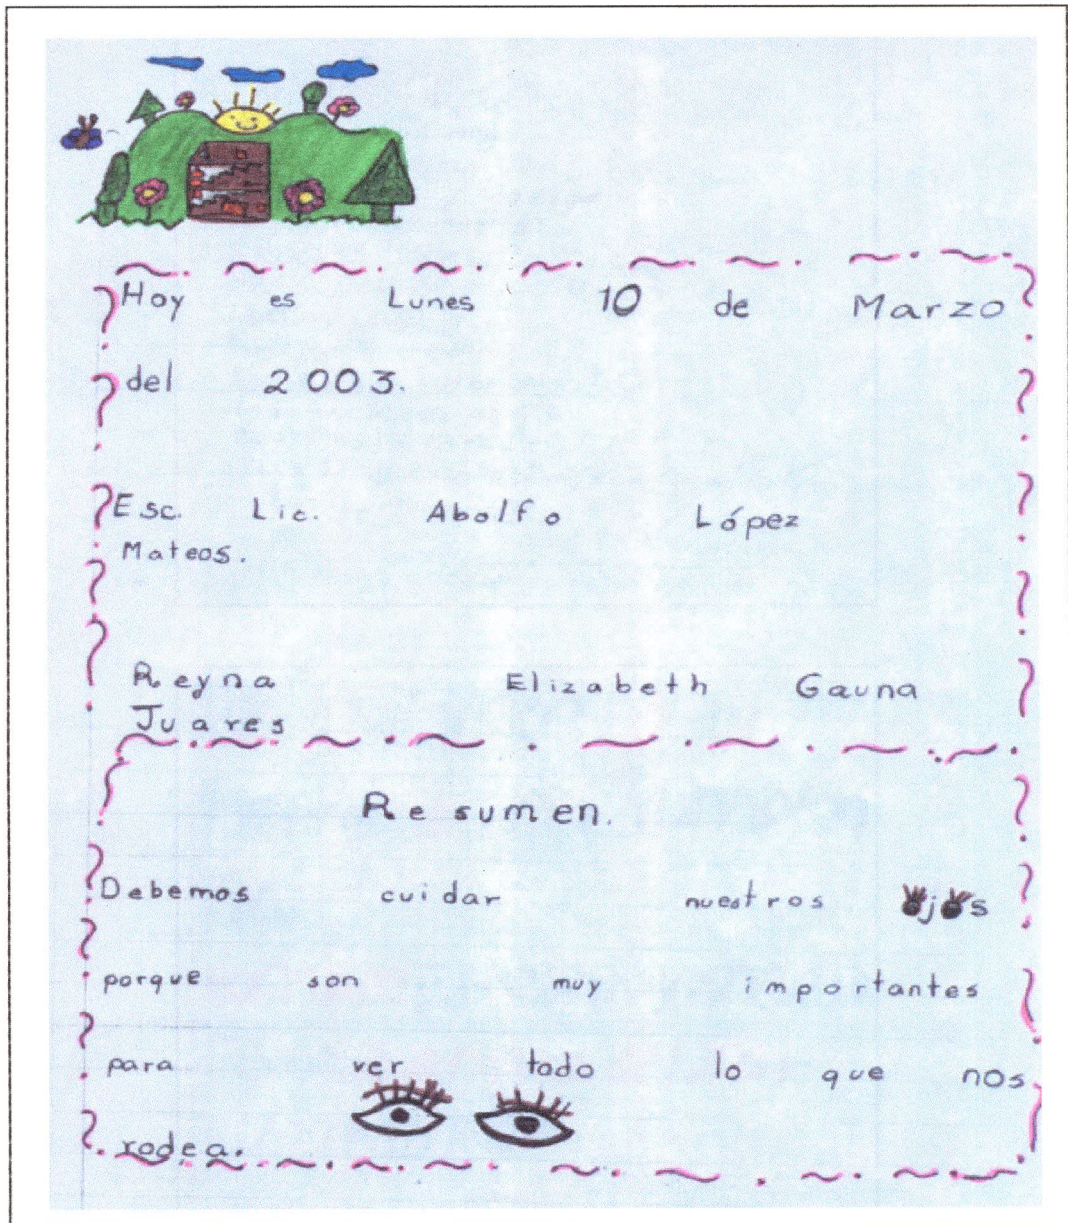 Hoy es Lunes 10 de Marzo
del 2003.
Esc. Lic. Abolfo López
Mateos.
Reyna Elizabeth Gauna
Juares
Resumen.
Debemos cuidar nuestros ojos
porque son muy importantes
para ver todo lo que nos
rodea.